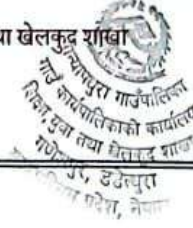 था खेलकुद शाखा
गन्यापधुरा गाउँपालिका
गाउँ कार्यपालिकाको कार्यालय
शिक्षा, युवा तथा खेलकुद शाखा
डडेल्धुरा
प्रदेश, नेपाल